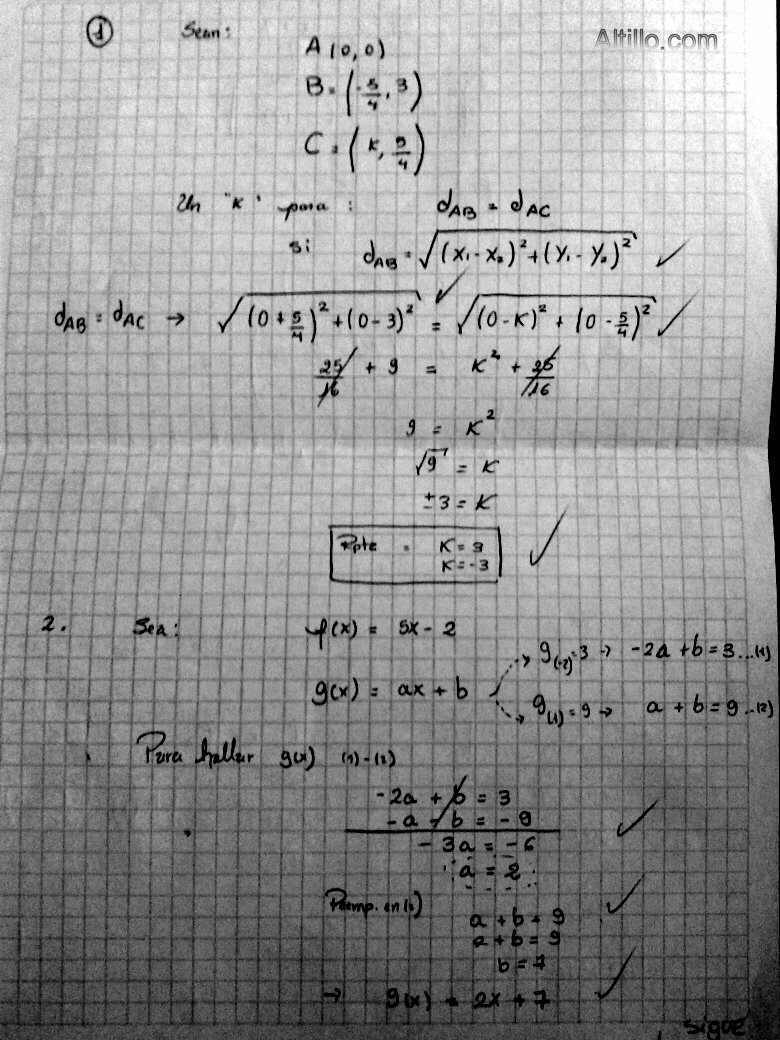 ① Sean: Altillo.com
A (0, 0)
B = (-5/4, 3)
C = (K, 5/4)
Un "K" para: dAB = dAC
si dAB = √(X₁ - X₂)² + (Y₁ - Y₂)²
dAB = dAC → √(0 + 5/4)² + (0 - 3)² = √(0 - K)² + (0 - 5/4)²
25/16 + 9 = K² + 25/16
9 = K²
√9 = K
±3 = K
Rpte = K = 3
K = -3
2. Sea: f(x) = 5x - 2
g(-2) = 3 → -2a + b = 3 ...(1)
g(x) = ax + b
g(1) = 9 → a + b = 9 ...(2)
Para hallar g(x) (1) - (2)
-2a + b = 3
-a - b = -9
-3a = -6
a = 2
Reemp. en (2)
a + b = 9
a + b = 9
b = 7
→ g(x) = 2x + 7
sigue